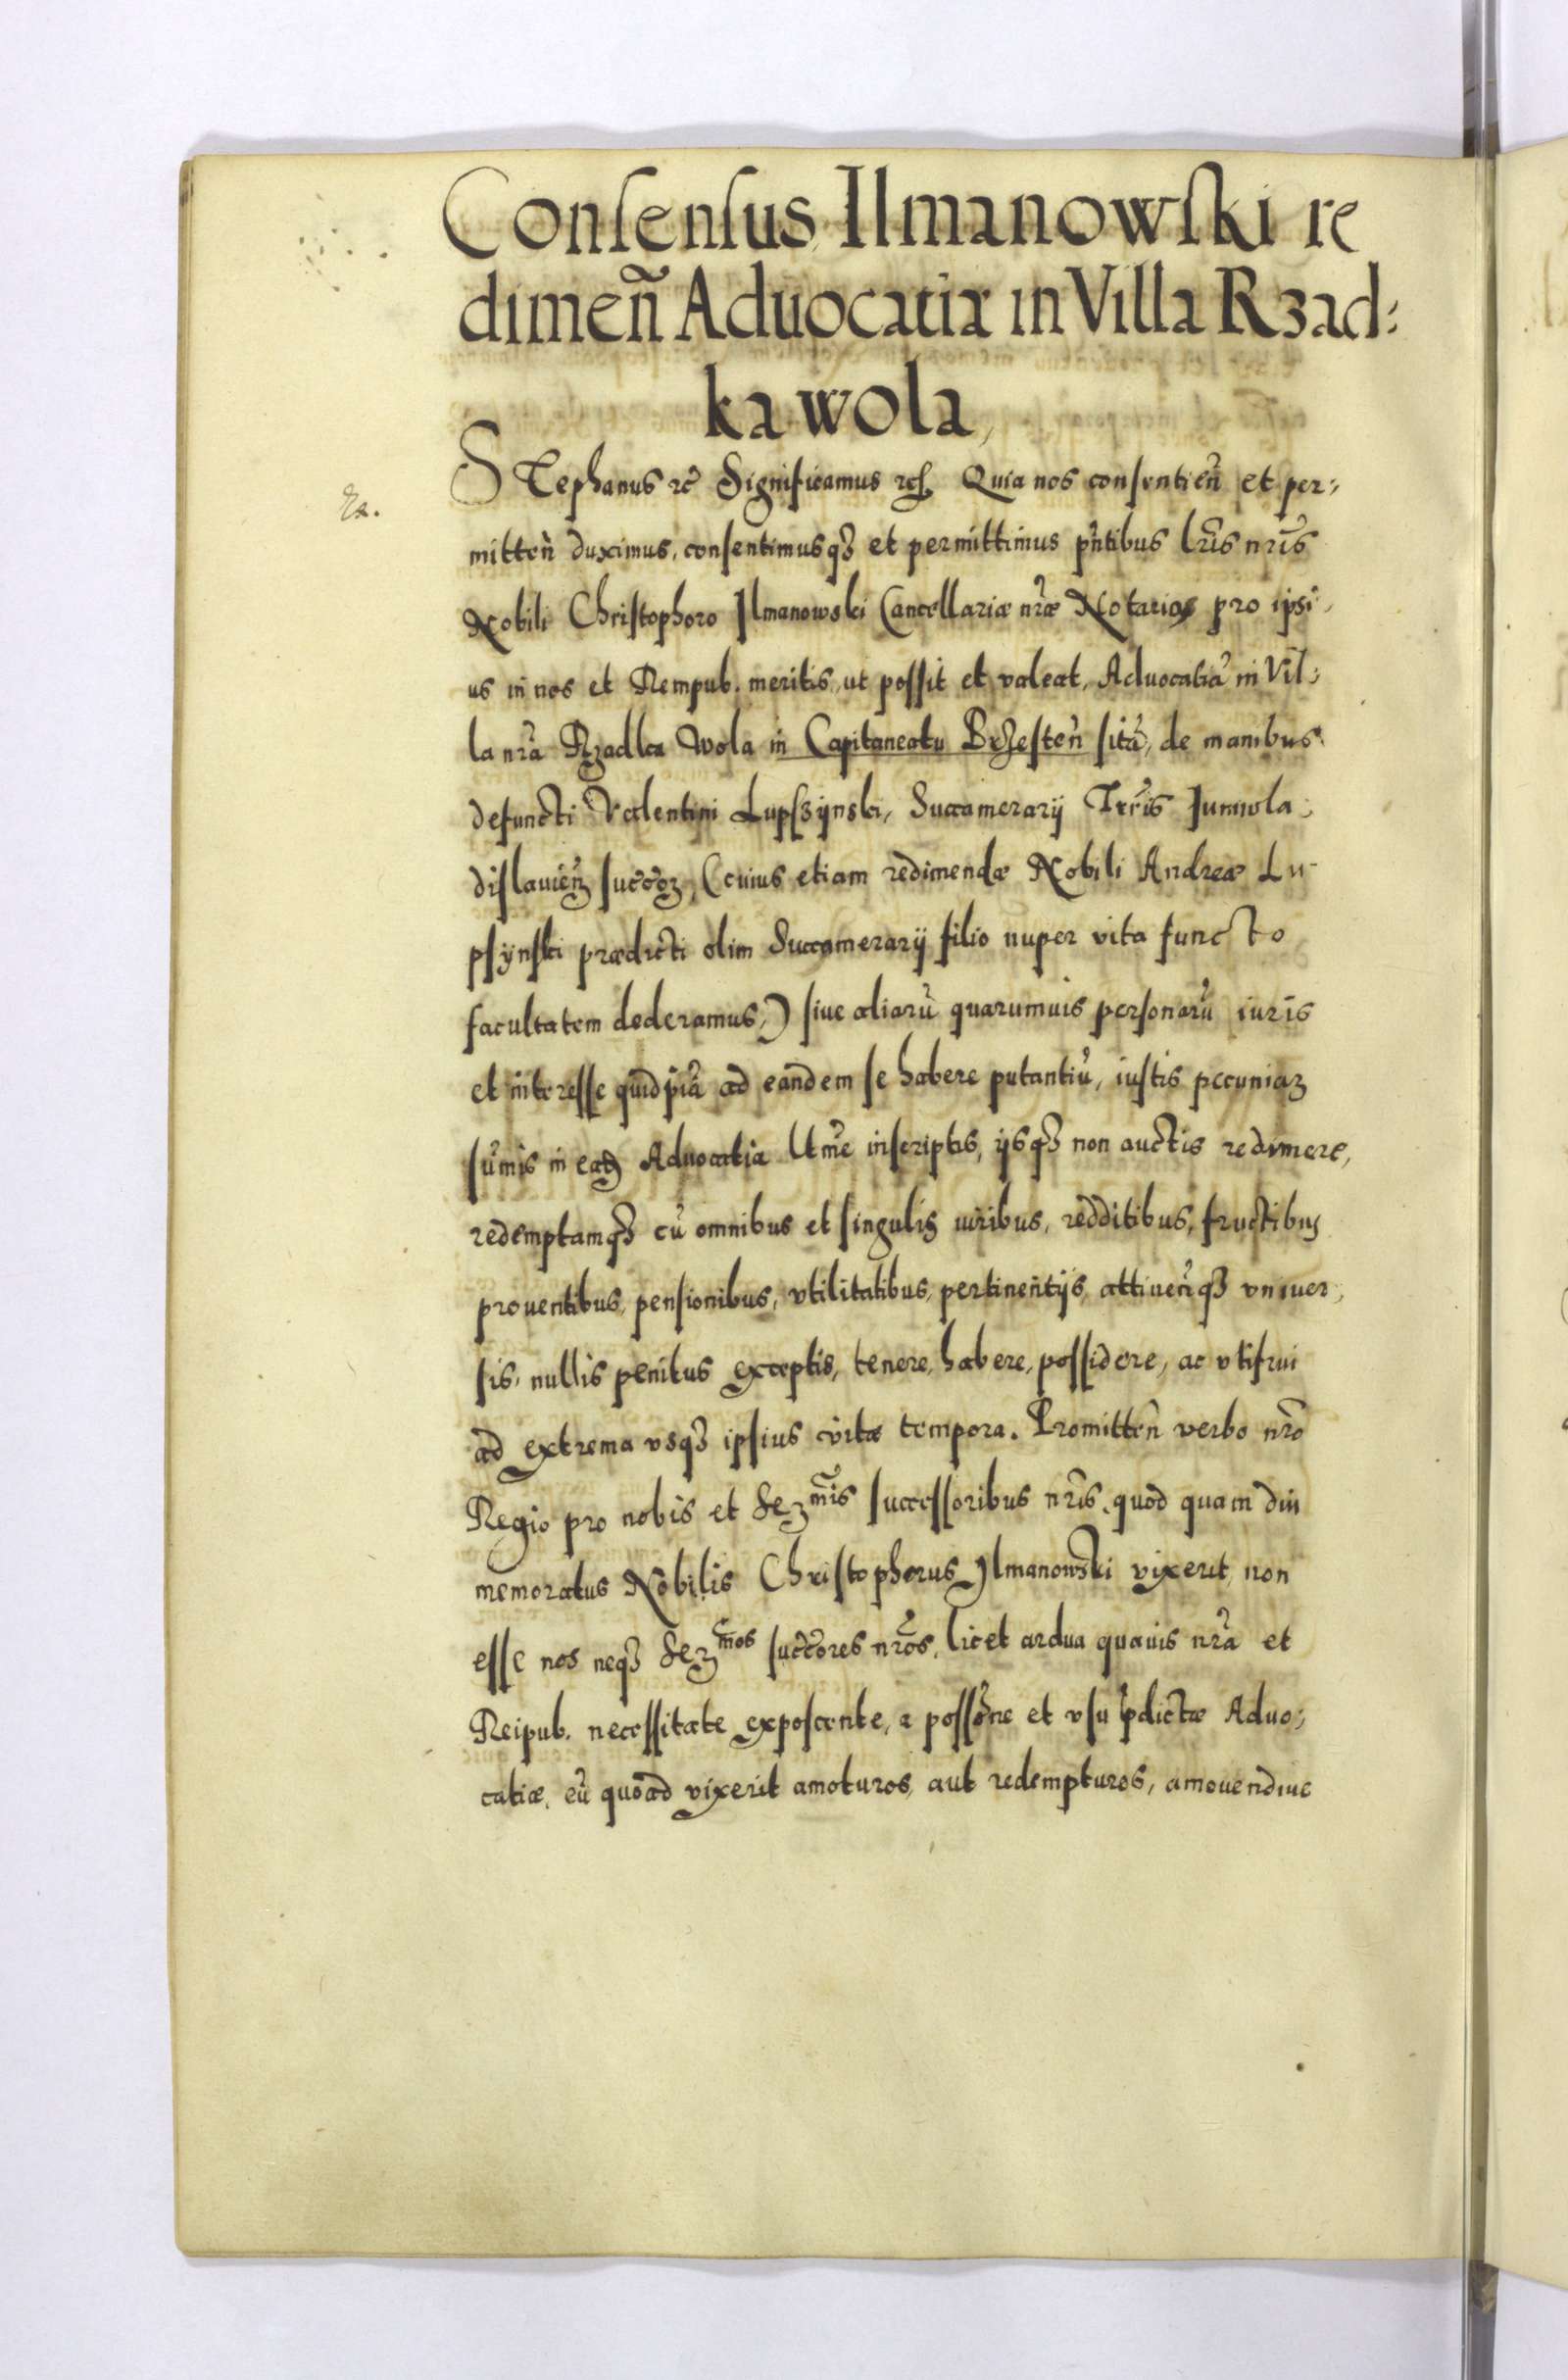 Consensus Ilmanowski re
dimen̄ Aduocatiæ in Villa Rzad:
ka wola,
STephanus ꝛc̃ Significamus ꝛcꝭ. Quia nos consentien̄ et per:
mitten̄ duximus, consentimusqꝫ et permittimus pn̄tibus lr̄is nr̄is
Nobili Christophoro Ilmanowski Cancellariæ nr̄æ Notario, pro ipsi,
us in nos et Rempub. meritis, ut possit et valeat, Aduocatiā in Vil:
la nr̄a Rzadka Wola in Capitaneatu Brzesten̄ sitā, de manibus
defuncti Valentini Lupszÿnski, Succamerarÿ Trr̄is Iuniwla:
dislauien̄ succꝫ, (cuius etiam redimendæ Nobili Andreæ Lu-
psÿnski prædicti olim Succamerarÿ filio nuper vita functo
facultatem dederamus,) siue aliarū quarumuis personarū iuris
et interesse quidpiā ad eandem se habere putantiū, iustis pecuniaꝝ
sūmis in eadꝫ Aduocatia ltm̄e inscriptis, ÿsqꝫ non auctis redimere,
redemptamqꝫ cū omnibus et singulis iuribus, redditibus, fructibus
prouentibus, pensionibus, vtilitatibus, pertinentÿs, attinen̄qꝫ vniuer,
sis, nullis penitus exceptis, tenere, habere, possidere, ac vtifrui
ad extrema vsqꝫ ipsius vitæ tempora. Promitten̄ verbo nr̄o
Regio pro nobis et Serᵐⁱˢ successoribus nr̄is, quod quam diu
memoratus Nobilis Christophorus Ilmanowski vixerit, non
esse nos neqꝫ Serᵐᵒˢ succr̄ores nr̄os, licet ardua quauis nr̄a et
Reipub. necessitate exposcente, a possōne et vsu p̄dictæ Aduo:
catiæ, eū quoad vixerit amoturos, aut redempturos, amouendiue